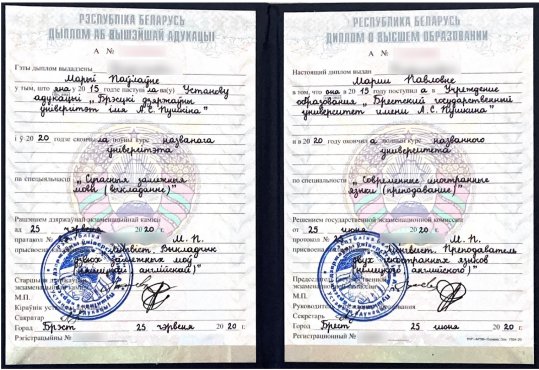 РЭСПУБЛІКА БЕЛАРУСЬ
ДЫПЛОМ АБ ВЫШЭЙШАЙ АДУКАЦЫІ
А №
Гэты дыплом выдадзены
Марыі Паўлаўне
у тым, што яна у 2015 годзе паступіла(ва ў) Установу
адукацыі „Брэсцкі дзяржаўны
ўніверсітэт імя А.С. Пушкіна"
і ў 2020 годзе скончыла поўны курс названага
ўніверсітэта
па спецыяльнасці „Сучасныя замежныя
мовы (выкладанне)"
Рашэннем дзяржаўнай экзаменацыйнай камісіі
ад 25 чэрвеня 2020 г.
пратакол № М. П.
прысвоена Лінгвіст. Выкладчык
дзвюх замежных моў
(нямецкай англійскай)
Старшыня
экзаменацыйнай
М.П.
Кіраўнік
Сакратар
Горад Брэст 25 чэрвеня 2020 г.
Рэгістрацыйны №
РЕСПУБЛИКА БЕЛАРУСЬ
ДИПЛОМ О ВЫСШЕМ ОБРАЗОВАНИИ
А №
Настоящий диплом выдан
Марии Павловне
в том, что она в 2015 году поступила в Учреждение
образования „Брестский государственный
университет имени А.С. Пушкина"
и в 2020 году окончила полный курс названного
университета
по специальности „Современные иностранные
языки (преподавание)"
Решением государственной экзаменационной комиссии
от 25 июня 2020 г.
протокол № М. П.
присвоена Лингвист. Преподаватель
двух иностранных языков
(немецкого английского)
Председатель
экзаменационной
М.П.
Руководитель
Секретарь
Город Брест 25 июня 2020 г.
Регистрационный №